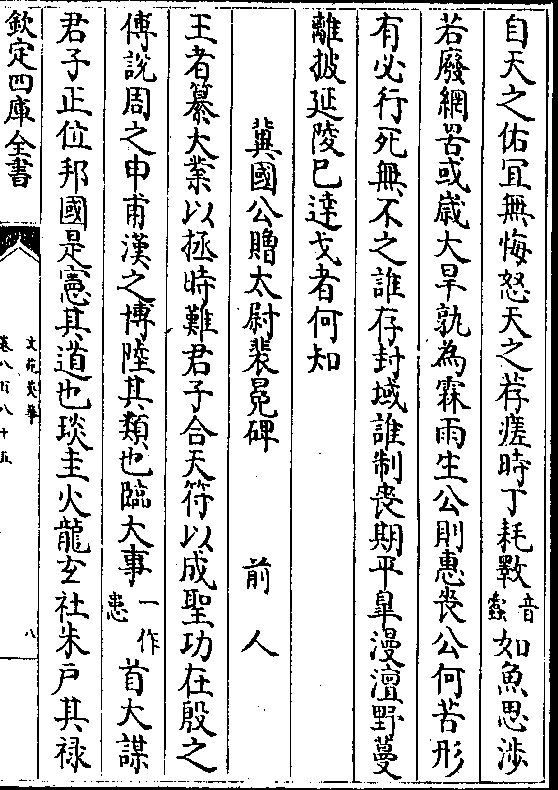 自天之佑冝無悔怒天之荐瘥時丁耗斁音蠧如魚思渉
若廢網罟或歳大旱孰為霖雨生公則惠喪公何苦形
有必行死無不之誰存封域誰制喪期平臯漫澶野蔓
離披延陵已達戈者何知
冀國公贈太尉裴冕碑 前人
王者纂大業以拯時難君子合天符以成聖功在殷之
傅說周之申甫漢之博陸其類也臨大事一作患首大謀
君子正位邦國是憲其道也琰圭火龍玄社朱戶其禄
欽定四庫全書
文苑英華
卷八百八十五
八